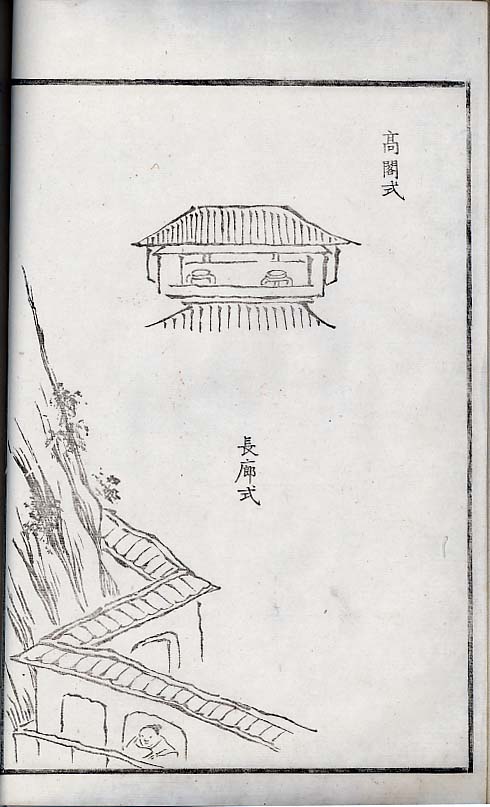 高閣式
長廊式